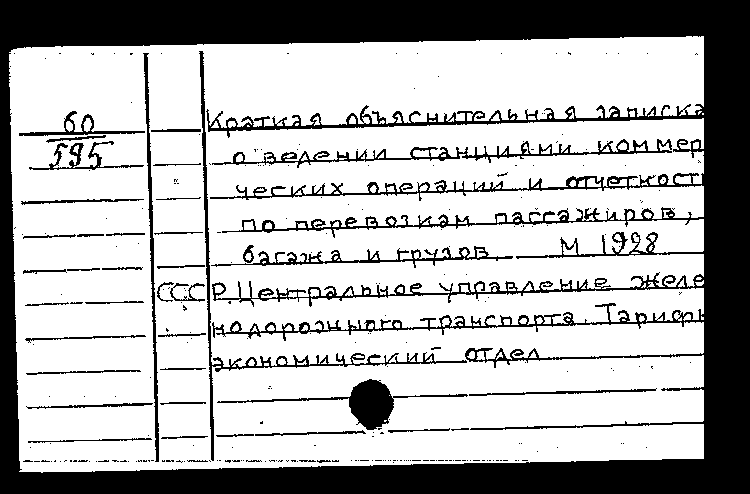 60
595
Краткая объяснительная записка
о ведении станциями коммер
ческих операций и отчетности
по перевозкам пассажиров,
багажа и грузов. М 1928
СССР. Центральное управление желе
нодорожного транспорта. Тарифн
экономический отдел